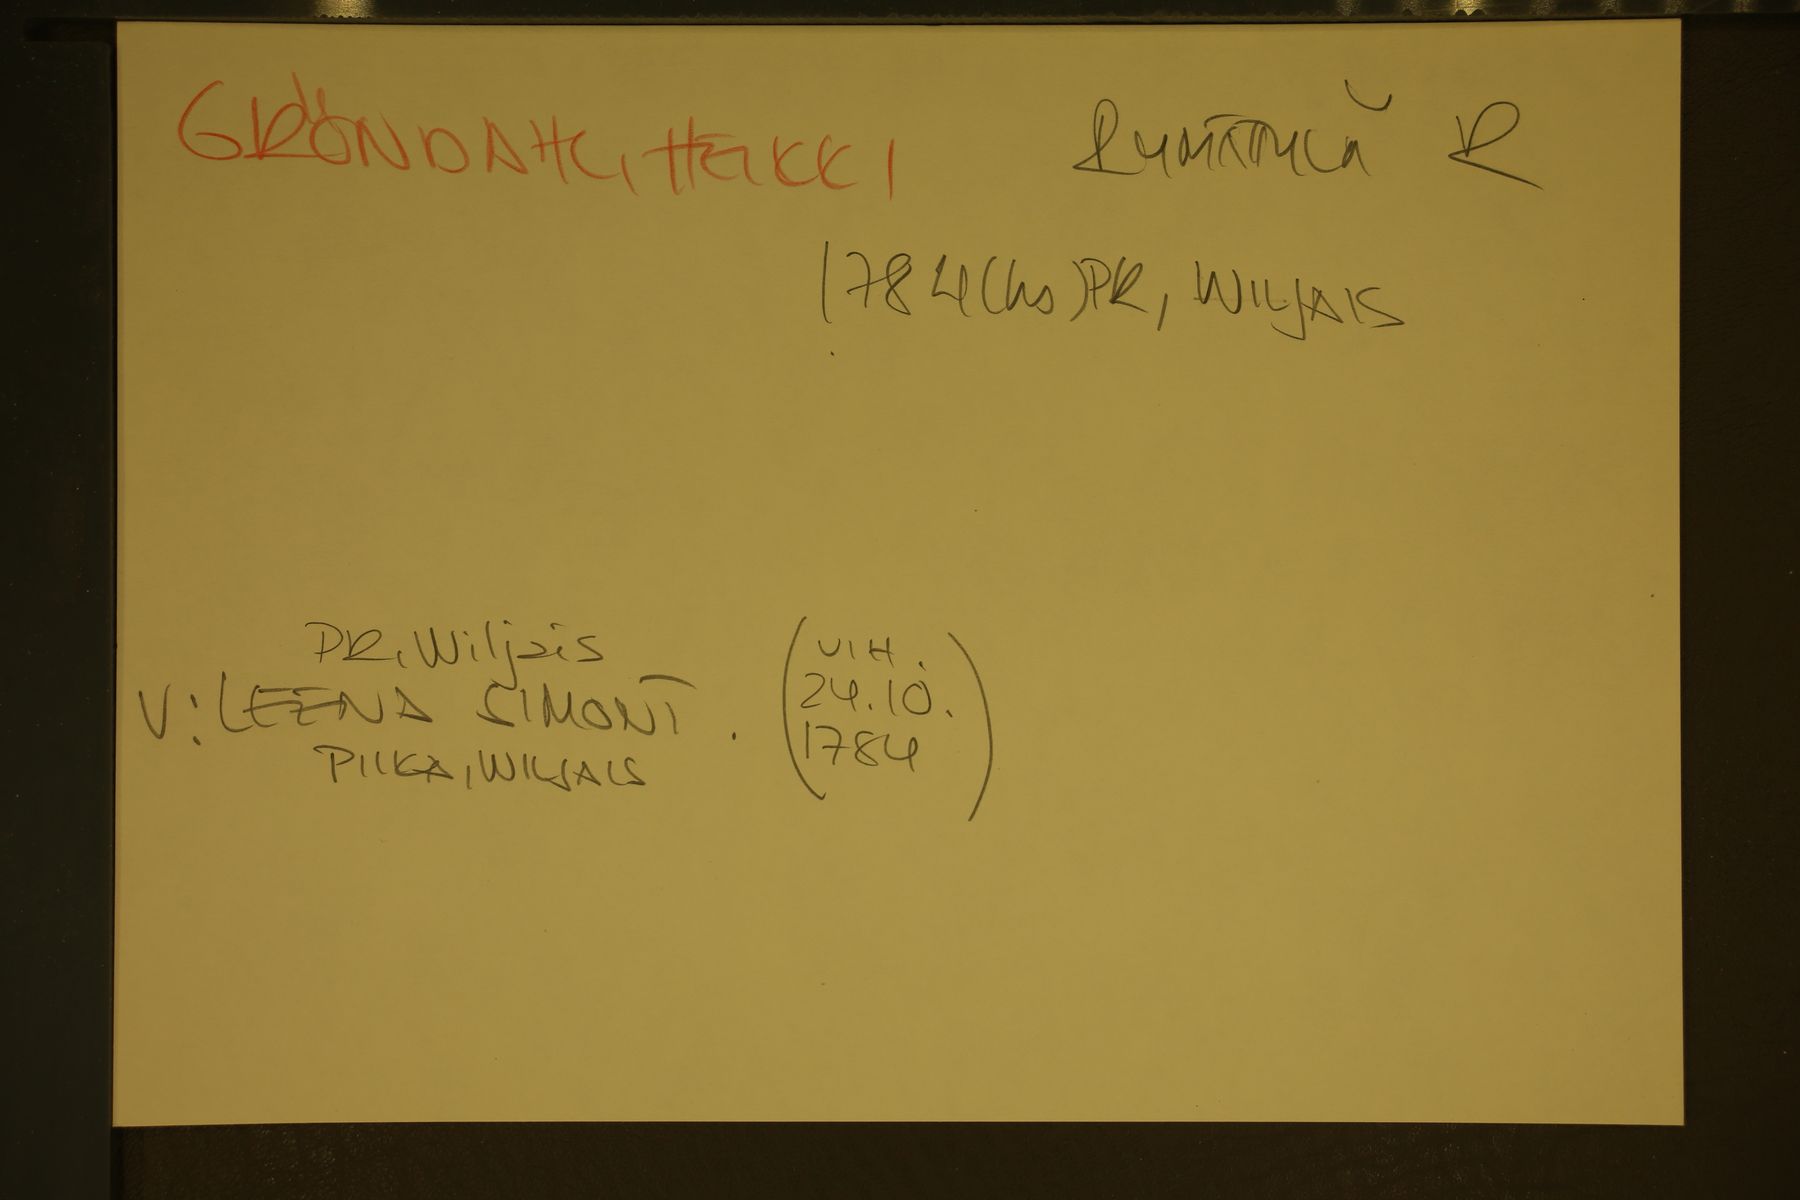 GRÖNDAHL, HEIKKI
RYMÄTTYLÄ R
1784 (hs) PR, WILJAIS
PR, Wiljais
V: LEENA SIMONT.
PIIKA, WILJAIS
(VIH.
24.10.
1784)